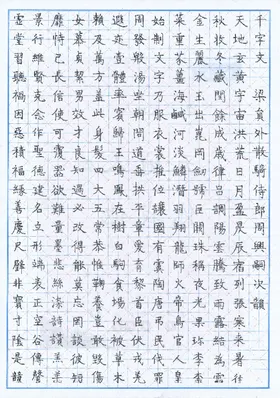 千字文 散騎侍郎周興嗣次韻
天地玄黃宇宙洪荒日月盈昃辰宿列張寒來暑往
秋收冬藏閏餘成歲律呂調陽雲騰致雨露結為霜
金生麗水玉出崑岡劍號巨闕珠稱夜光果珍李柰
菜重芥薑海鹹河淡鱗潛羽翔龍師火帝鳥官人皇
始制文字乃服衣裳推位讓國有虞陶唐弔民伐罪
周發殷湯坐朝問道垂拱平章愛育黎首臣伏戎羌
遐邇壹體率賓歸王鳴鳳在樹白駒食場化被草木
賴及萬方蓋此身髮四大五常恭惟鞠養豈敢毀傷
女慕貞絜男效才良知過必改得能莫忘罔談彼短
靡恃己長信使可覆器欲難量墨悲絲染詩讚羔羊
景行維賢克念作聖德建名立形端表正空谷傳聲
虛堂習聽禍因惡積福緣善慶尺璧非寶寸陰是競